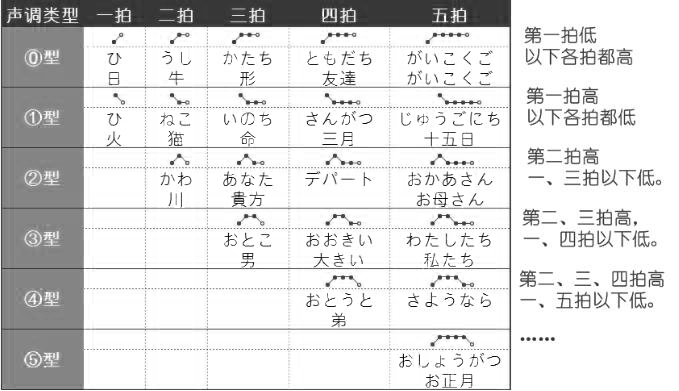 声调类型 一拍 二拍 三拍 四拍 五拍
⓪型 ひ うし かたち ともだち がいこくご
日 牛 形 友達 がいこくご
第一拍低
以下各拍都高
①型 ひ ねこ いのち さんがつ じゅうごにち
火 猫 命 三月 十五日
第一拍高
以下各拍都低
②型 かわ あなた デパート おかあさん
川 貴方 お母さん
第二拍高
一、三拍以下低。
③型 おとこ おおきい わたしたち
男 大きい 私たち
第二、三拍高，
一、四拍以下低。
④型 おとうと さようなら
弟
第二、三、四拍高
一、五拍以下低。
⑤型 おしょうがつ
お正月
……